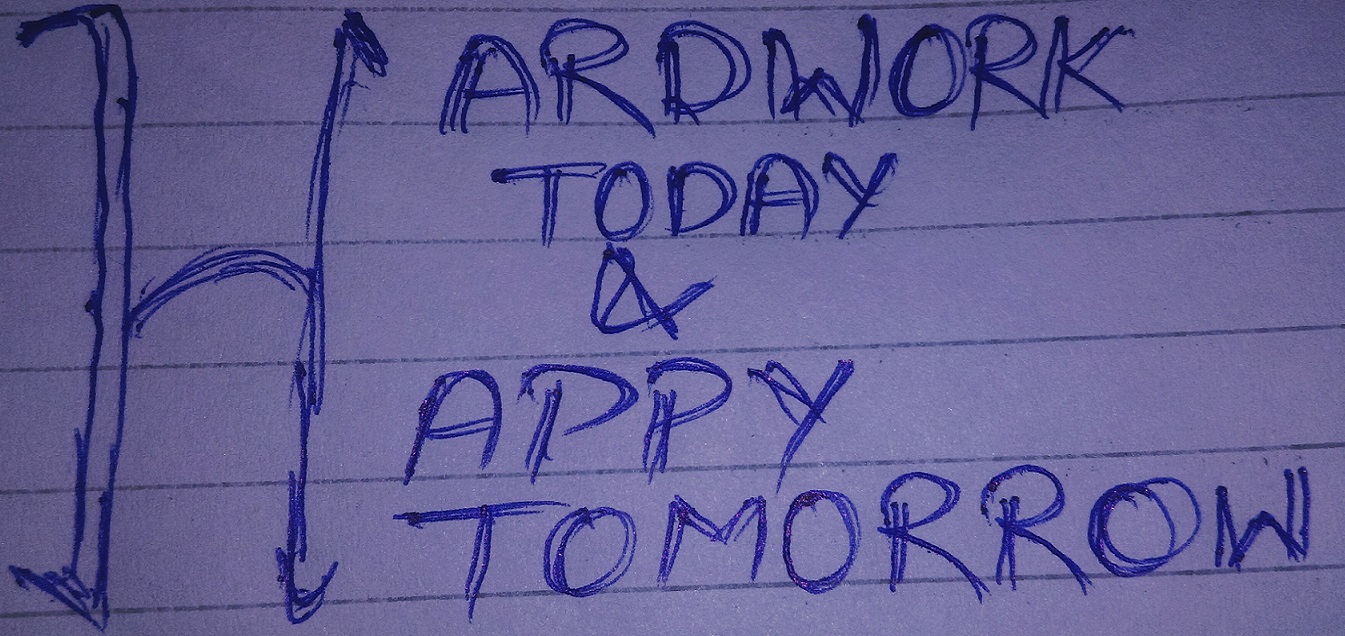 HARDWORK
TODAY
&
APPY
TOMORROW